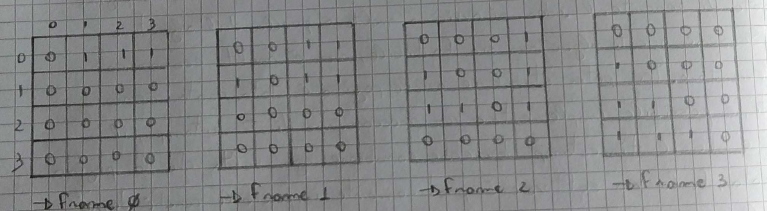 0 1 2 3
0 0 1 1 1
1 0 0 0 0
2 0 0 0 0
3 0 0 0 0
→ frame 0
0 0 1 1
1 0 1 1
0 0 0 0
0 0 0 0
→ frame 1
0 0 0 1
1 0 0 1
1 1 0 1
0 0 0 0
→ frame 2
0 0 0 0
1 0 0 0
1 1 0 0
1 1 1 0
→ frame 3